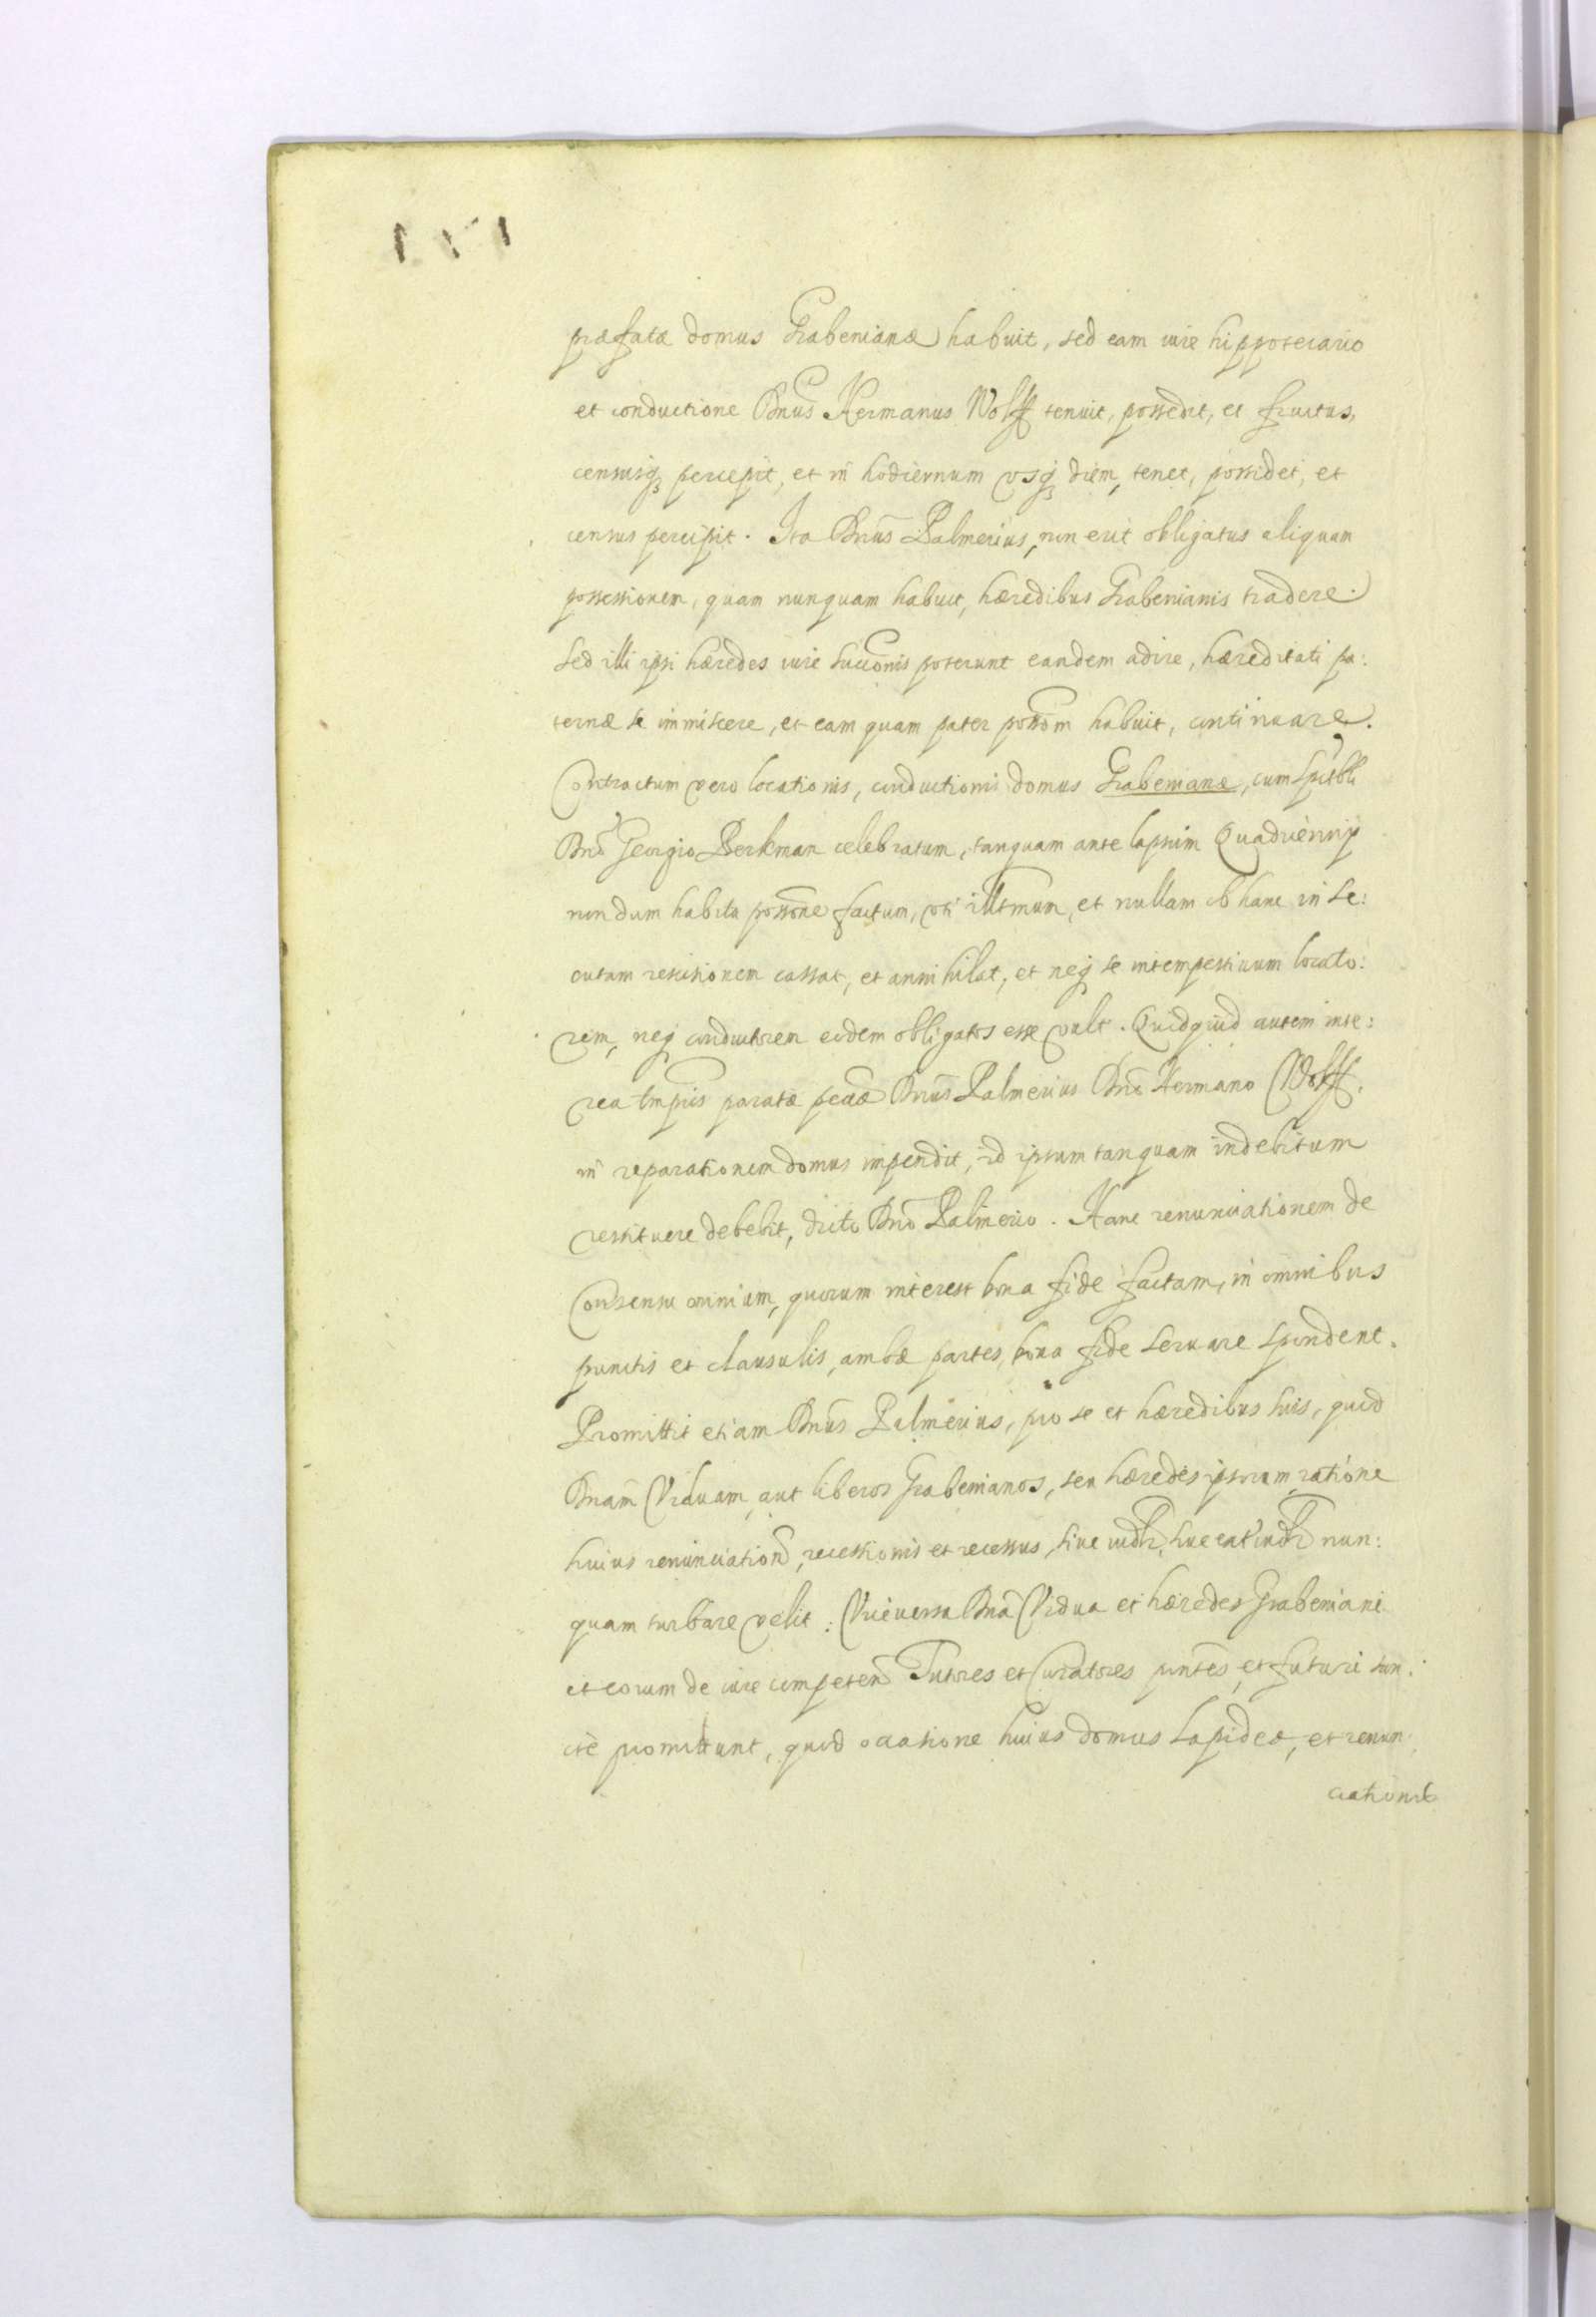 præfatæ domus Grabenianæ habuit, sed eam iure hippotecario
et conductione Dnus Hermanus Wolff tenuit, possedit, et fructus,
censusq percepit, et in hodiernum vsq diem, tenet, possidet, et
census percipit. Ita Dnus Palmerius, non erit obligatus aliquam
possessionem, quam nunquam habuit, hæredibus Grabenianis tradere.
Sed illi ipsi hæredes iure succonis poterunt eandem adire, hæreditati pa:
ternæ se immiscere, et eam quam pater possom habuit, continuare.
Contractum vero locationis, conductionis domus Grabenianæ, cum Spectbli
Dno Georgio Berkman celebratum, tanquam ante lapsum Quadriennij
nondum habita possone factum, vti illtmum, et nullam ob hanc in se:
cutam rescisionem cassat, et annihilat, et neq se intempestiuum locato:
rem, neq conductorem eidem obligatos esse vult. Quidquid autem inte:
rea paratæ pecæ Dnus Palmerius Dno Hermano Wolff,
in reparationem domus impendit, id ipsum tanquam indebitum
restituere debebit, dicto Dno Palmerio. Hanc renunciationem de
Consensu omnium, quorum interest bona fide factam, in omnibus
punctis et clausulis, ambæ partes, bona fide seruare spondent.
Promittit etiam Dnus Palmerius, pro se et hæredibus suis, quod
Dnam Viduam, aut liberos Grabenianos, seu hæredes ipsorum, ratione
huius renunciation, recessionis et recessus, siue iudlr, siue extraiudlr nun:
quam turbare velit: Viceuersa Dna Vidua et hæredes Grabeniani
et eorum de iure competen Tutores et Curatores pntes, et futuri
promittunt, quod occasione huius domus Lapideæ, et renun:
ciationis